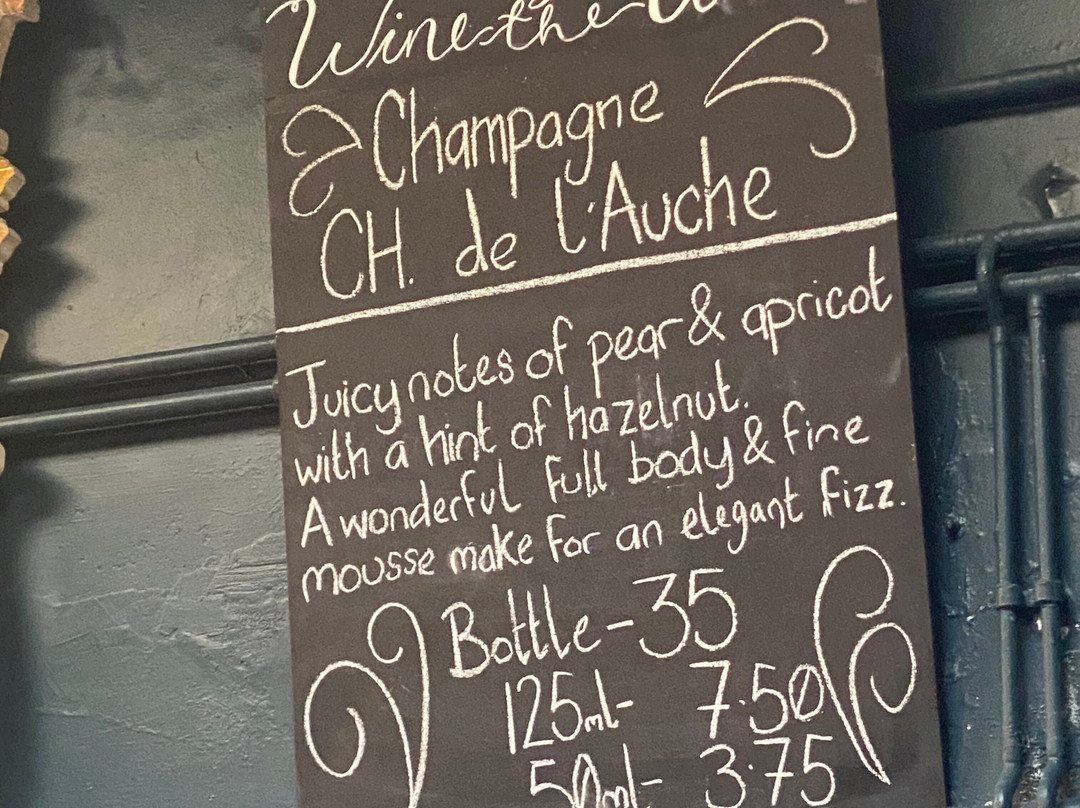 Wine-the
Champagne
CH. de l'Auche
Juicy notes of pear & apricot
with a hint of hazelnut.
A wonderful full body & fine
mousse make for an elegant fizz.
Bottle-35
125ml- 7.50
50ml- 3.75